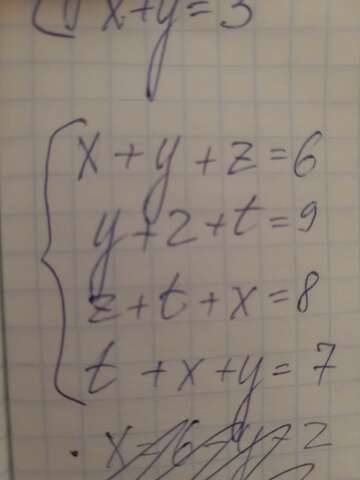 x+y=3
x+y+z=6
y+z+t=9
z+t+x=8
t+x+y=7